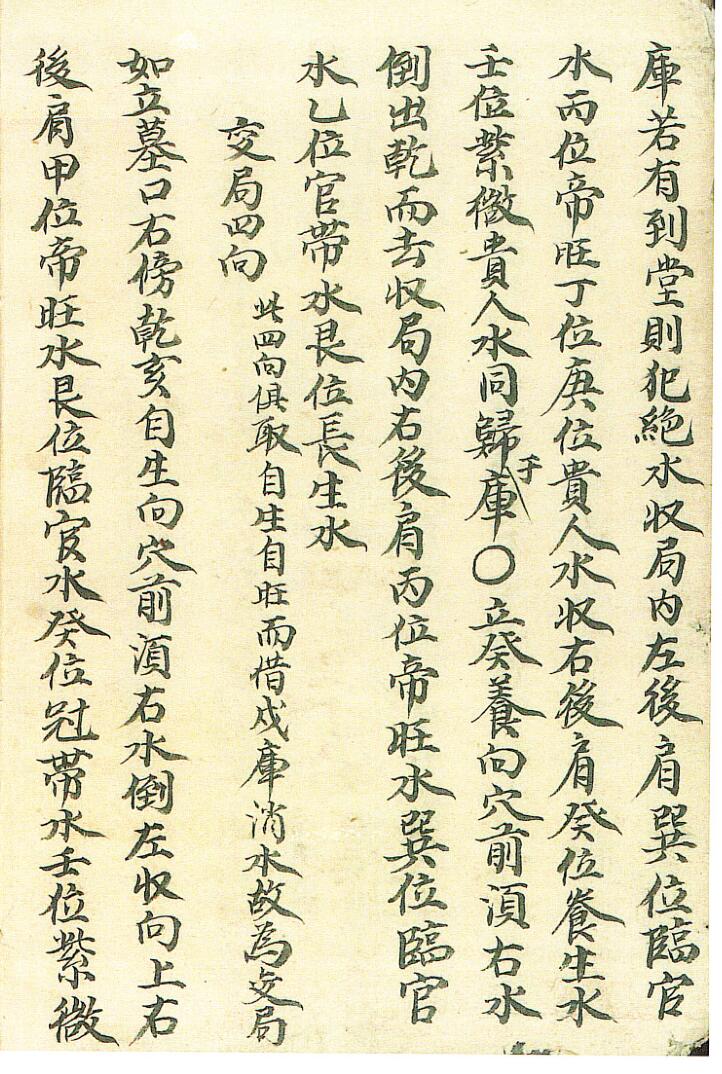 庫若有到堂則犯絶水収局内左後肩巽位臨官
水丙位帝旺丁位庚位貴人水収右後肩癸位養生水
壬位紫微貴人水同歸于庫〇立癸養向穴前湏右水
倒出乾而去収局内右後肩丙位帝旺水巽位臨官
水乙位官帶水艮位長生水
交局四向 此四向俱取自生自旺而借戍庫消水故為交局
如立墓口右傍乾亥自生向穴前湏右水倒左収向上右
後肩甲位帝旺水艮位臨官水癸位冠帶水壬位紫微